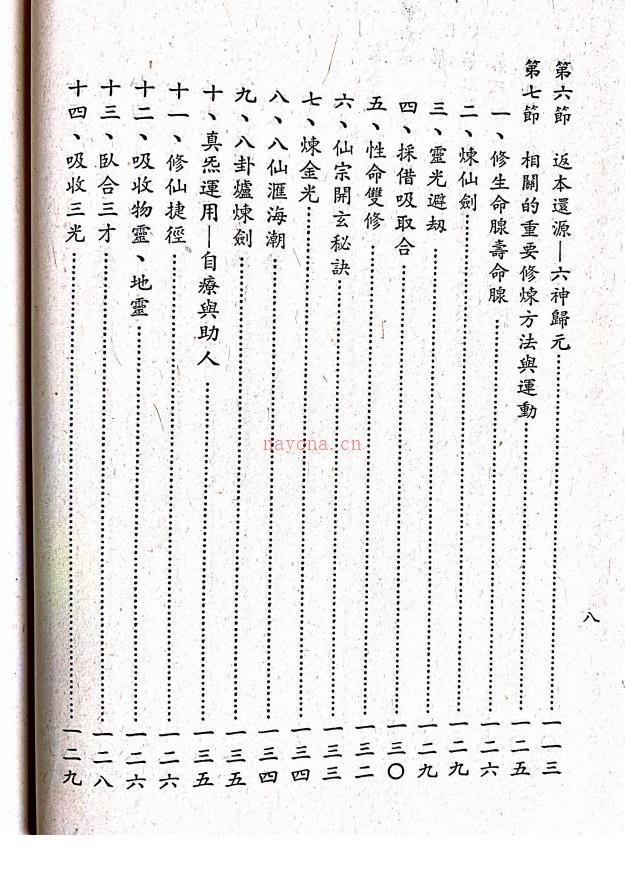 第六節 返本還源—六神歸元……一一三
第七節 相關的重要修煉方法與運動……一二五
一、修生命腺壽命腺……一二六
二、煉仙劍……一二九
三、靈光避刼……一二九
四、採借吸取合……一三〇
五、性命雙修……一三二
六、仙宗開玄秘訣……一三三
七、煉金光……一三四
八、八仙滙海潮……一三四
九、八卦爐煉劍……一三五
十、真炁運用—自療與助人……一三五
十一、修仙捷徑……一二六
十二、吸收物靈、地靈……一二六
十三、臥合三才……一二八
十四、吸收三光……一二九
八
nayona.cn